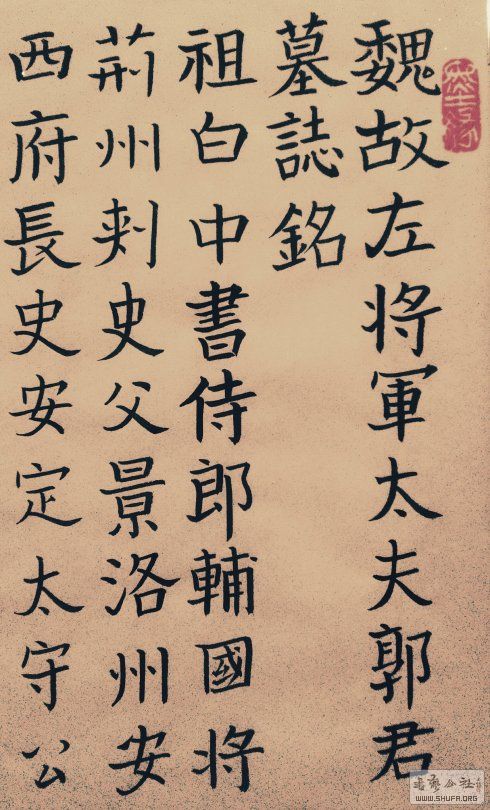 魏故左将軍太夫郭君
墓誌銘
祖白中書侍郎輔國将
荊州刾史父景洛州安
西府長史安定太守公
WWW.SHUFA.ORG